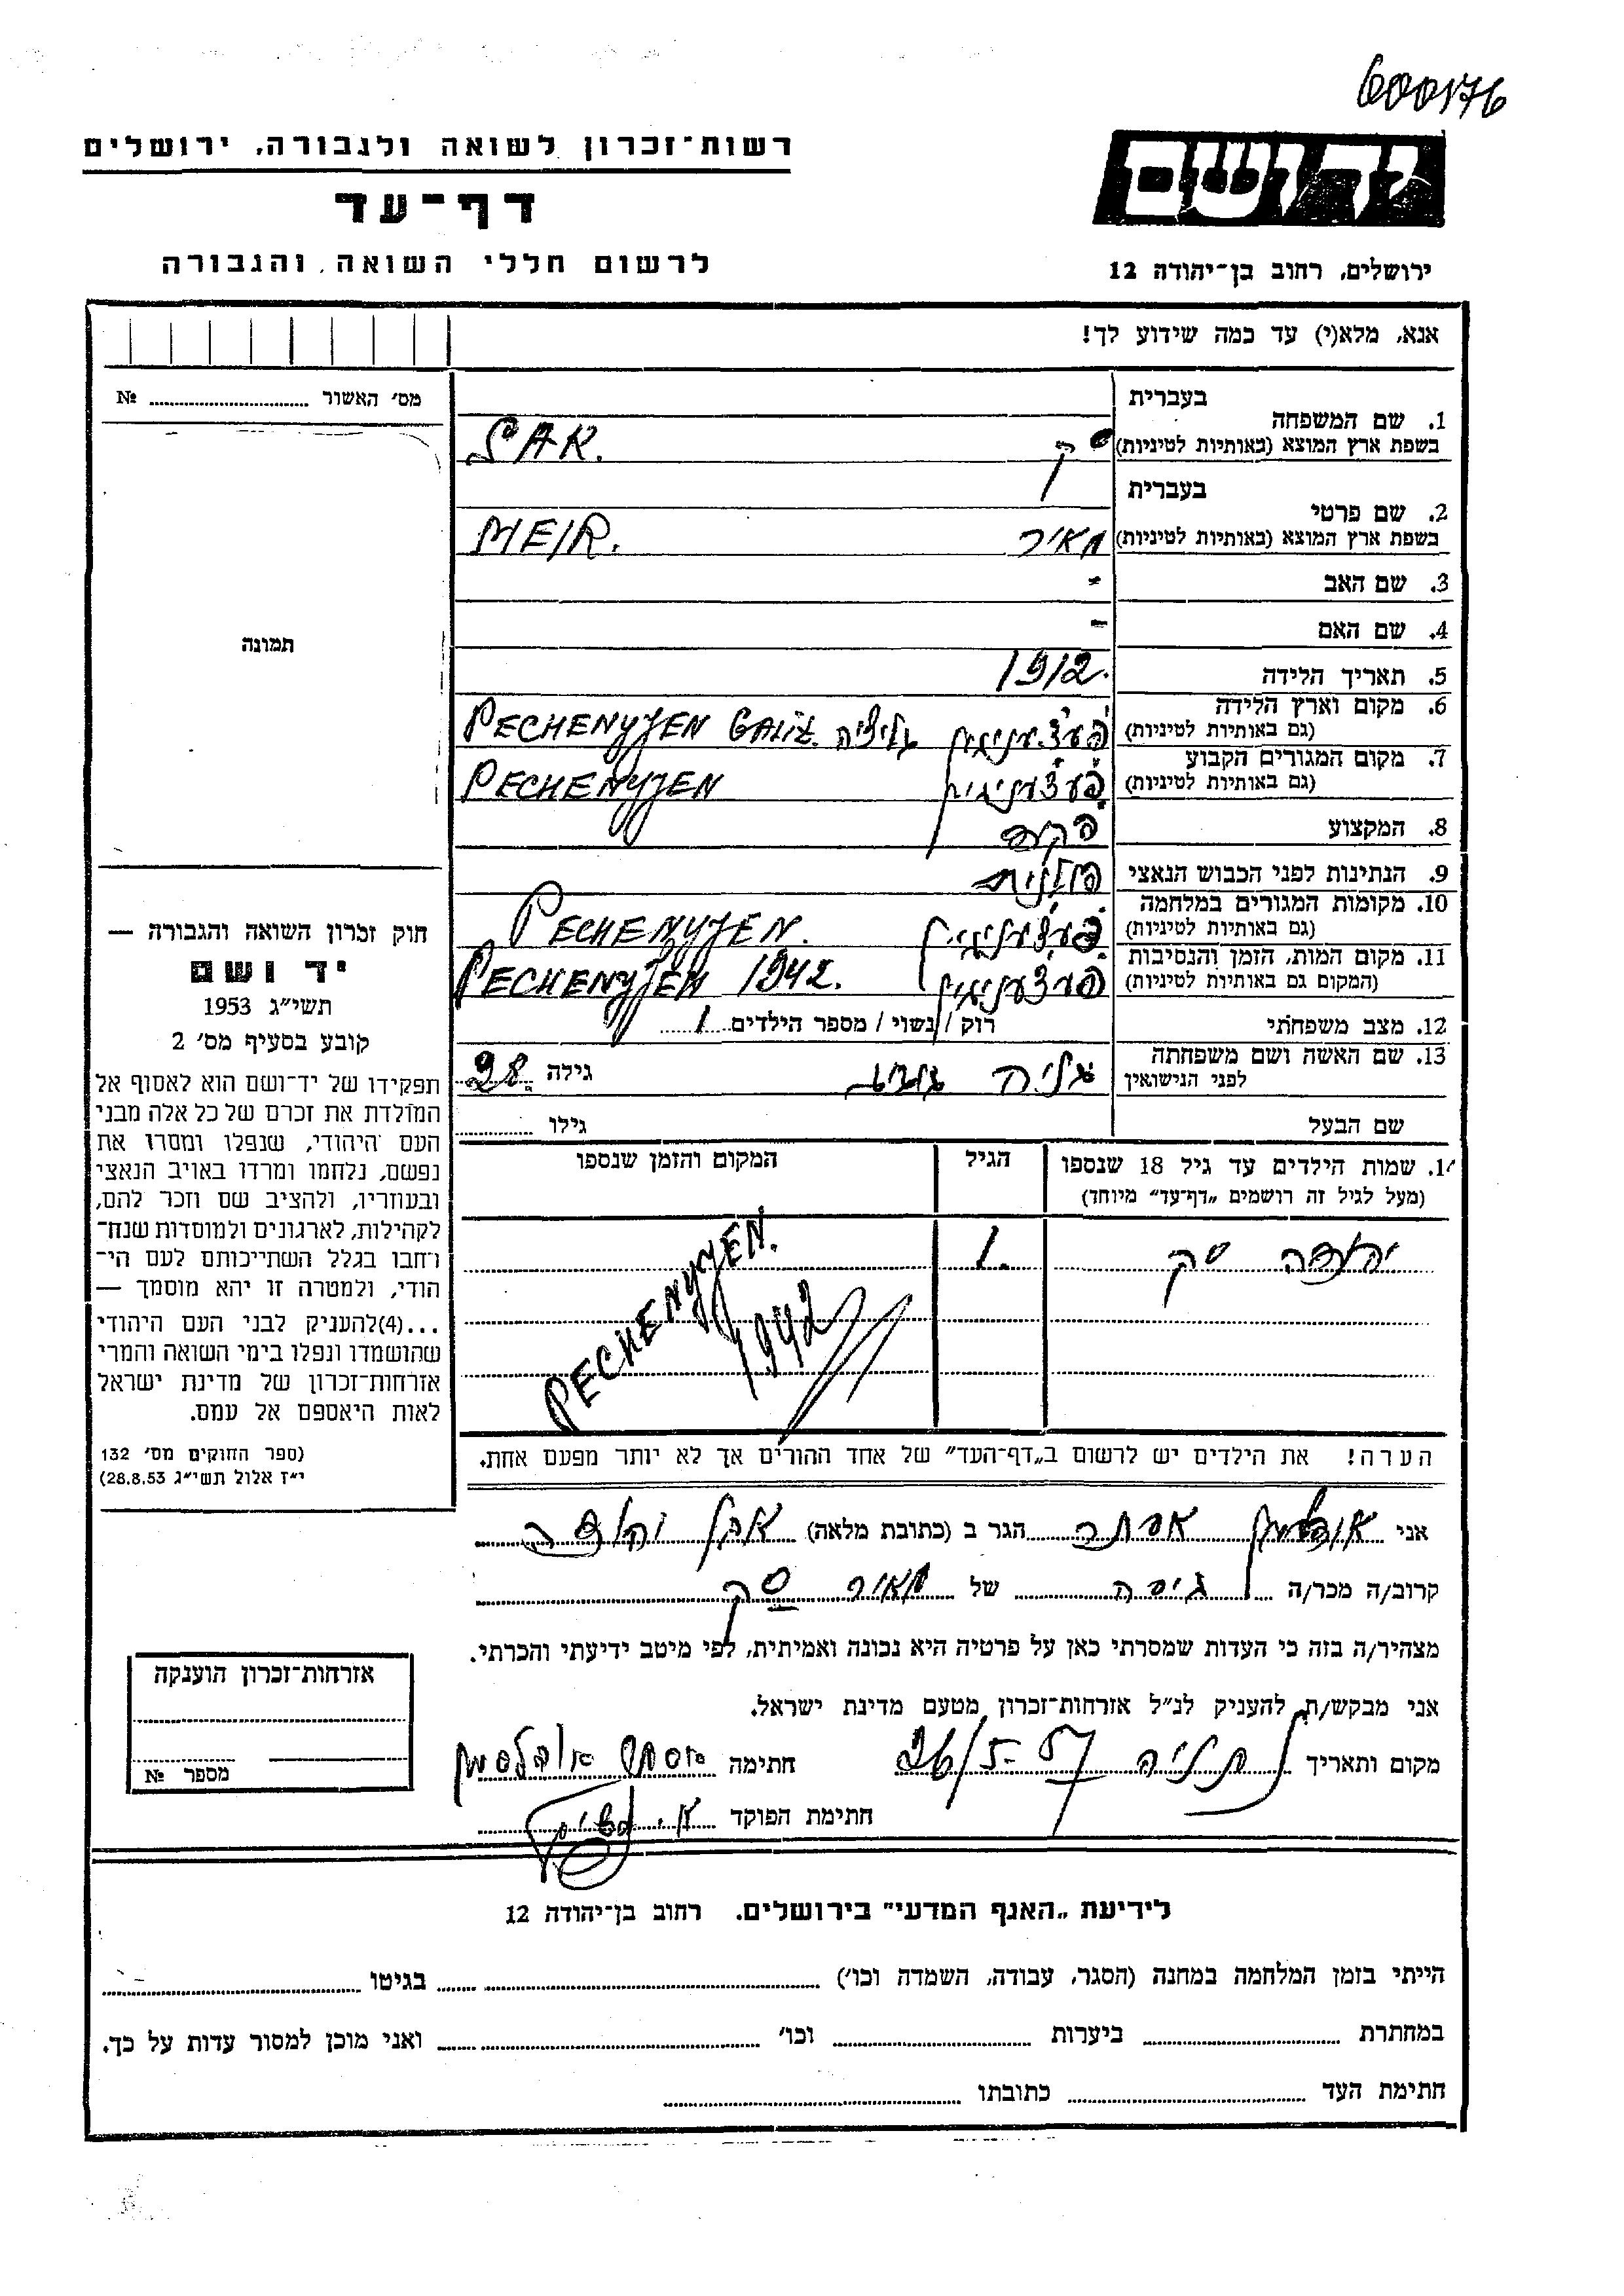 600176
רשות־זכרון לשואה ולגבורה, ירושלים
דף־עד
לרשום חללי השואה והגבורה
יד ושם
ירושלים, רחוב בן־יהודה 12
אנא, מלא(י) עד כמה שידוע לך!
מס׳ האשור № 
1. שם המשפחה
בעברית
בשפת ארץ המוצא (באותיות לטיניות)
סק SAK.
2. שם פרטי
בעברית
בשפת ארץ המוצא (באותיות לטיניות)
מאיר MEIR.
3. שם האב -
4. שם האם -
5. תאריך הלידה 1912.
6. מקום וארץ הלידה
(גם באותיות לטיניות)
גליציה PECHENYJEN GALIZ.
7. מקום המגורים הקבוע
(גם באותיות לטיניות)
PECHENYJEN
8. המקצוע פקיד
9. הנתינות לפני הכבוש הנאצי פולנית
10. מקומות המגורים במלחמה
(גם באותיות לטיניות)
PECHENYJEN.
11. מקום המות, הזמן והנסיבות
(המקום גם באותיות לטיניות)
PECHENYJEN 1942.
12. מצב משפחתי רוק / נשוי / מספר הילדים 1
13. שם האשה ושם משפחתה
לפני הנישואין
גילה 28
שם הבעל גילו
14. שמות הילדים עד גיל 18 שנספו
(מעל לגיל זה רושמים „דף־עד״ מיוחד)
הגיל
המקום והזמן שנספו
יהודה סק 1. PECHENYJEN.
1942
הערה! את הילדים יש לרשום ב„דף־העד״ של אחד ההורים אך לא יותר מפעם אחת.
תמונה
חוק זכרון השואה והגבורה —
יד ושם
תשי״ג 1953
קובע בסעיף מס׳ 2
תפקידו של יד־ושם הוא לאסוף אל
המולדת את זכרם של כל אלה מבני
העם היהודי, שנפלו ומסרו את
נפשם, נלחמו ומרדו באויב הנאצי
ובעוזריו, ולהציב שם וזכר להם,
לקהילות, לארגונים ולמוסדות שנח־
רחבו בגלל השתייכותם לעם הי־
הודי, ולמטרה זו יהא מוסמך —
...(4)להעניק לבני העם היהודי
שהושמדו ונפלו בימי השואה והמרי
אזרחות־זכרון של מדינת ישראל
לאות היאספם אל עמם.
(ספר החוקים מס׳ 132
י״ז אלול תשי״ג 28.8.53)
אני אסתר הגר ב (כתובת מלאה) אבן יהודה
קרוב/ה מכר/ה גיסה של מאיר סק
מצהיר/ה בזה כי העדות שמסרתי כאן על פרטיה היא נכונה ואמיתית, לפי מיטב ידיעתי והכרתי.
אני מבקש/ת להעניק לנ״ל אזרחות־זכרון מטעם מדינת ישראל.
מקום ותאריך נתניה 26/5-57 חתימה אסתר
חתימת הפוקד
אזרחות־זכרון הוענקה
מספר №
לידיעת „האגף המדעי״ בירושלים. רחוב בן־יהודה 12
הייתי בזמן המלחמה במחנה (הסגר, עבודה, השמדה וכו׳) בגיטו
במחתרת ביערות וכו׳ ואני מוכן למסור עדות על כך.
חתימת העד כתובתו